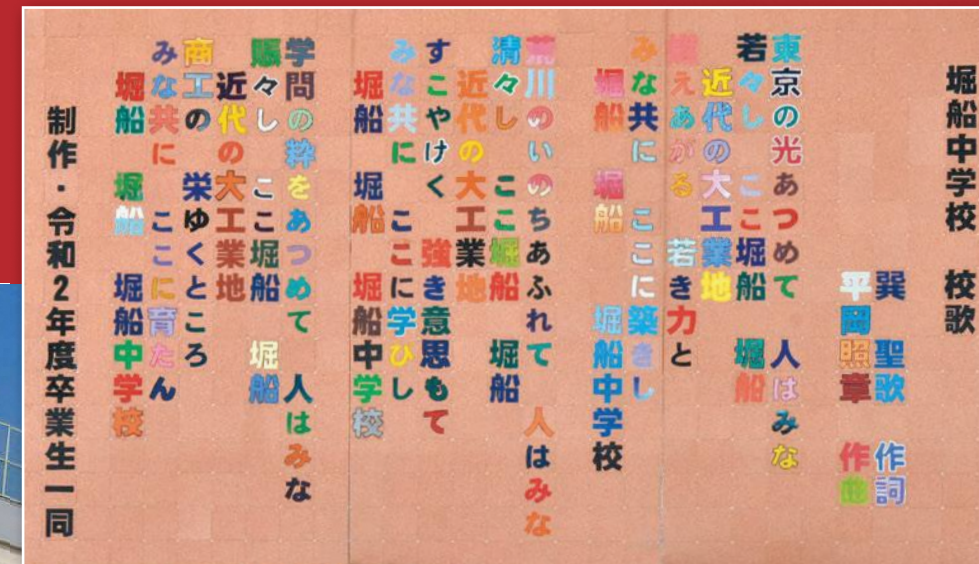 堀船中学校 校歌
巽 聖歌 作詞
平岡照章 作曲
東京の光あつめて 人はみな
若々し ここ堀船 堀船
近代の大工業地
燃えあがる 若き力と
みな共に ここに築きし
堀船 堀船 堀船中学校
荒川のいのちあふれて 人はみな
清々し ここ堀船 堀船
近代の大工業地
すこやけく 強き意思もて
みな共に ここに学びし
堀船 堀船 堀船中学校
学問の粋をあつめて 人はみな
賑々し ここ堀船 堀船
近代の大工業地
商工の 栄ゆくところ
みな共に ここに育たん
堀船 堀船 堀船中学校
制作・令和2年度卒業生一同